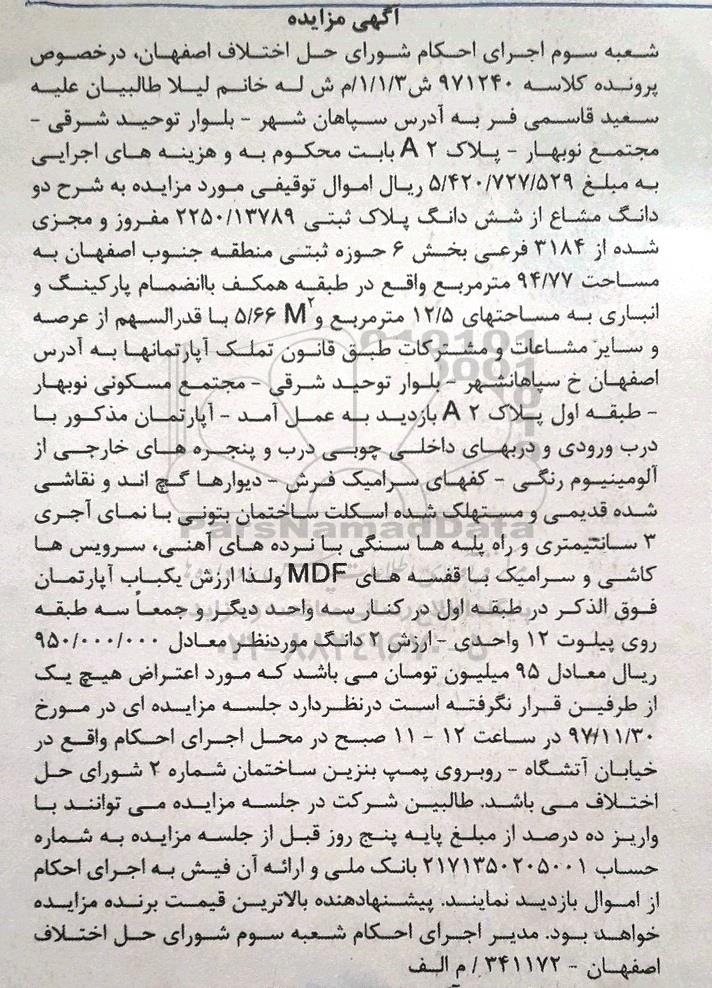 آگهی مزایده
شعبه سوم اجرای احکام شورای حل اختلاف اصفهان، درخصوص
پرونده کلاسه ۹۷۱۲۴۰ ش۱/۱/۳/م ش له خانم لیلا طالبیان علیه
سعید قاسمی فر به آدرس سپاهان شهر - بلوار توحید شرقی -
مجتمع نوبهار - پلاک A ۲ بابت محکوم به و هزینه های اجرایی
به مبلغ ۵/۴۲۰/۷۲۷/۵۲۹ ریال اموال توقیفی مورد مزایده به شرح دو
دانگ مشاع از شش دانگ پلاک ثبتی ۲۲۵۰/۱۳۷۸۹ مفروز و مجزی
شده از ۳۱۸۴ فرعی بخش ۶ حوزه ثبتی منطقه جنوب اصفهان به
مساحت ۹۴/۷۷ مترمربع واقع در طبقه همکف باانضمام پارکینگ و
انباری به مساحتهای ۱۲/۵ مترمربع و۵/۶۶ M۲ با قدرالسهم از عرصه
و سایر مشاعات و مشترکات طبق قانون تملک آپارتمانها به آدرس
اصفهان خ سپاهانشهر - بلوار توحید شرقی - مجتمع مسکونی نوبهار
- طبقه اول پلاک A ۲ بازدید به عمل آمد - آپارتمان مذکور با
درب ورودی و دربهای داخلی چوبی درب و پنجره های خارجی از
آلومینیوم رنگی - کفهای سرامیک فرش - دیوارها گچ اند و نقاشی
شده قدیمی و مستهلک شده اسکلت ساختمان بتونی با نمای آجری
۳ سانتیمتری و راه پله ها سنگی با نرده های آهنی، سرویس ها
کاشی و سرامیک با قفسه های MDF ولذا ارزش یکباب آپارتمان
فوق الذکر در طبقه اول در کنار سه واحد دیگر و جمعاً سه طبقه
روی پیلوت ۱۲ واحدی - ارزش ۲ دانگ موردنظر معادل ۹۵۰/۰۰۰/۰۰۰
ریال معادل ۹۵ میلیون تومان می باشد که مورد اعتراض هیچ یک
از طرفین قرار نگرفته است درنظردارد جلسه مزایده ای در مورخ
۹۷/۱۱/۳۰ در ساعت ۱۲ - ۱۱ صبح در محل اجرای احکام واقع در
خیابان آتشگاه - روبروی پمپ بنزین ساختمان شماره ۲ شورای حل
اختلاف می باشد. طالبین شرکت در جلسه مزایده می توانند با
واریز ده درصد از مبلغ پایه پنج روز قبل از جلسه مزایده به شماره
حساب ۲۱۷۱۳۵۰۲۰۵۰۰۱ بانک ملی و ارائه آن فیش به اجرای احکام
از اموال بازدید نمایند. پیشنهاددهنده بالاترین قیمت برنده مزایده
خواهد بود. مدیر اجرای احکام شعبه سوم شورای حل اختلاف
اصفهان - ۳۴۱۱۷۲ / م الف
ParsNamadData